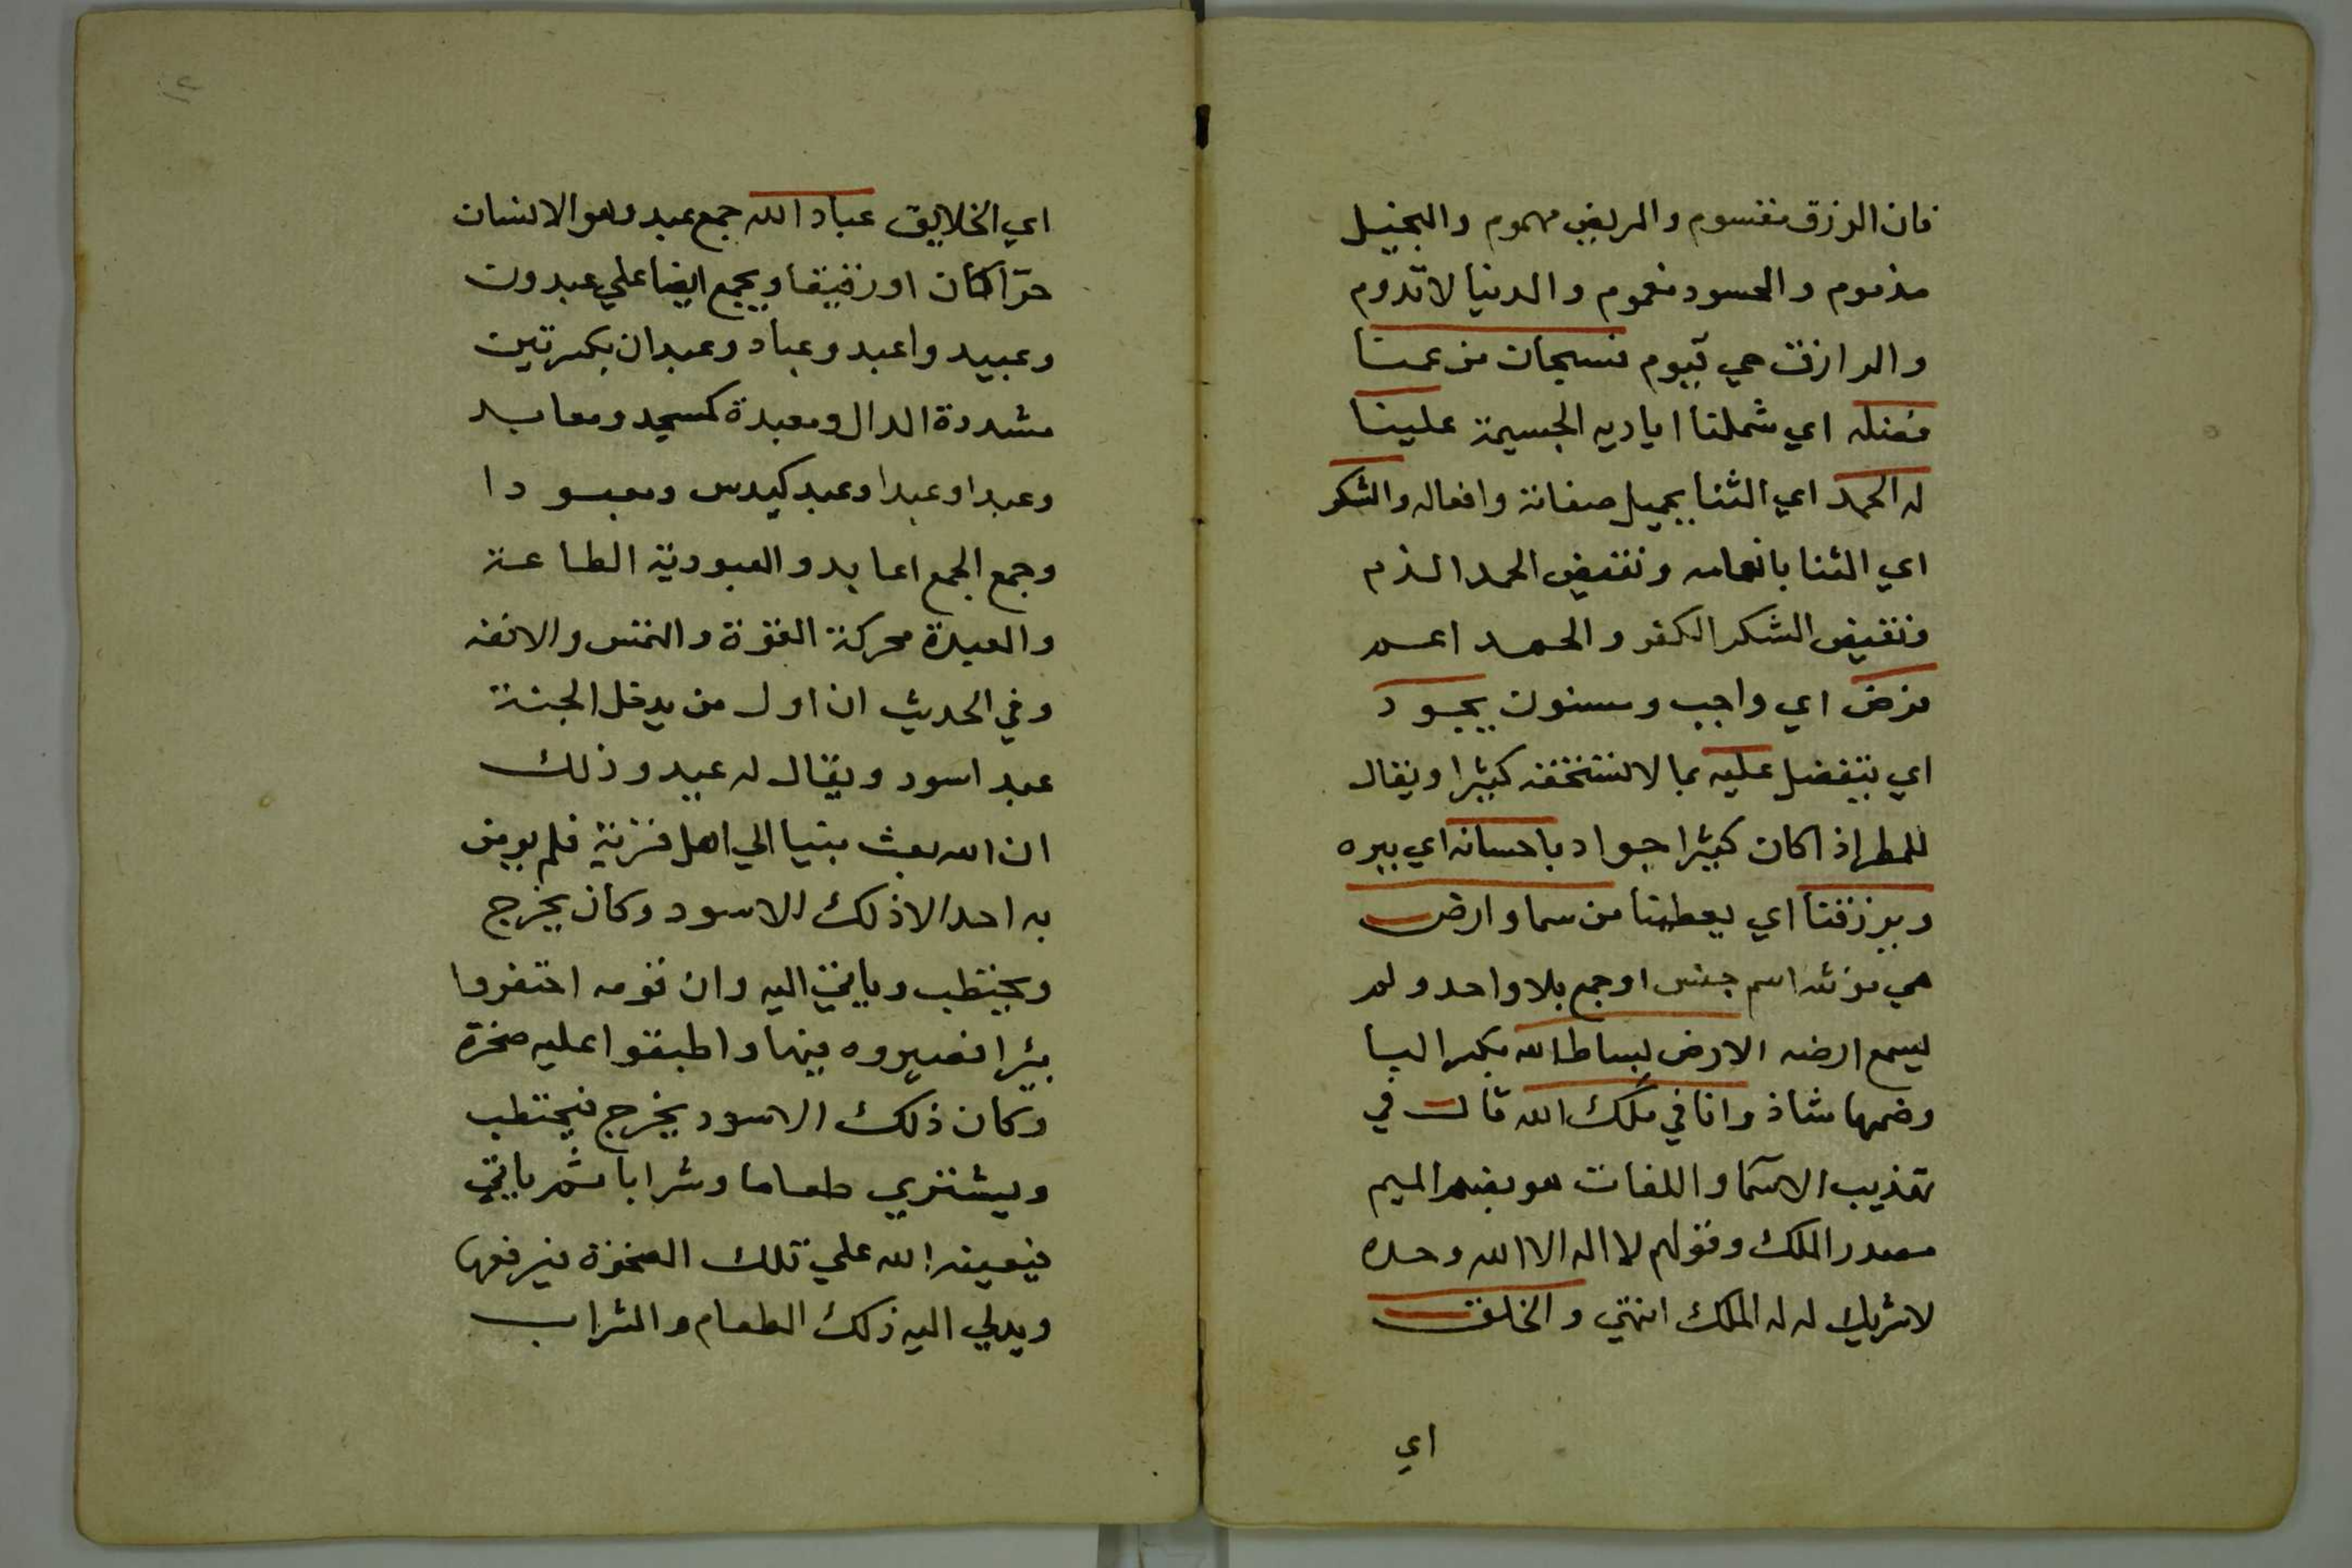 فان الرزق مقسوم والمريض مهموم والبخيل
مذموم والحسود مغموم والدنيا لا تدوم
والرازق حي قيوم فسبحان من عمنا
فضله اي شملنا اياديه الجسيمة علينا
له الحمد اي الثنا بجميل صفاته وافعاله والشكر
اي الثنا بانعامه ونقيض الحمد الذم
ونقيض الشكر الكفر والحمد اعم
فرض اي واجب ومسنون يجود
اي يتفضل عليه بما لا نستحقه كثيرا ويقال
للمطر اذا كان كثيرا جواد باحسانه اي ببره
ويرزقنا اي يعطينا من سما وارض
هي مونثه اسم جنس او جمع بلا واحد ولم
يسمع ارضه الارض بساط الله بكسر البا
وضمها شاذ وانا في ملك الله قال في
تهذيب الاسما واللغات هو بضم الميم
مصدر الملك وقولهم لا اله الا الله وحده
لا شريك له له الملك انتهي والخلق
اي
١٢
اي الخلايق عباد الله جمع عبد وهو الانسان
حرّا كان او رقيقا ويجمع ايضا علي عبدون
وعبيد واعبد وعباد وعبدان بكسرتين
مشددة الدال ومعبدة كمسجد ومعابد
وعبدا وعبدا وعبد كيدس ومعبودا
وجمع الجمع اعابد والعبودية الطاعة
والعبدة محركة القوة والنفس والانفه
وفي الحديث ان اول من يدخل الجنة
عبد اسود ويقال له عبيد وذلك
ان الله بعث نبيا الي اهل قرية فلم يومن
به احد الا ذلك الاسود وكان يخرج
ويحتطب وياتي اليه وان قومه احتفروا
بئرا فصيروه فيها واطبقوا عليه صخرة
وكان ذلك الاسود يخرج فيحتطب
ويشتري طعاما وشرابا ثم ياتي
فيعينه الله علي تلك الصخرة فيرفعها
ويدلي اليه ذلك الطعام والشراب